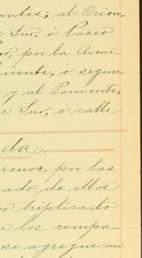 antes; al Orien-
e Sur, ó Paseo
or, por la Aveni-
niente, ó segun
y al Poniente,
e Sur, ó calle
da.
renos por las
ado de ellos
triplicado
a los compa-
se agregue un